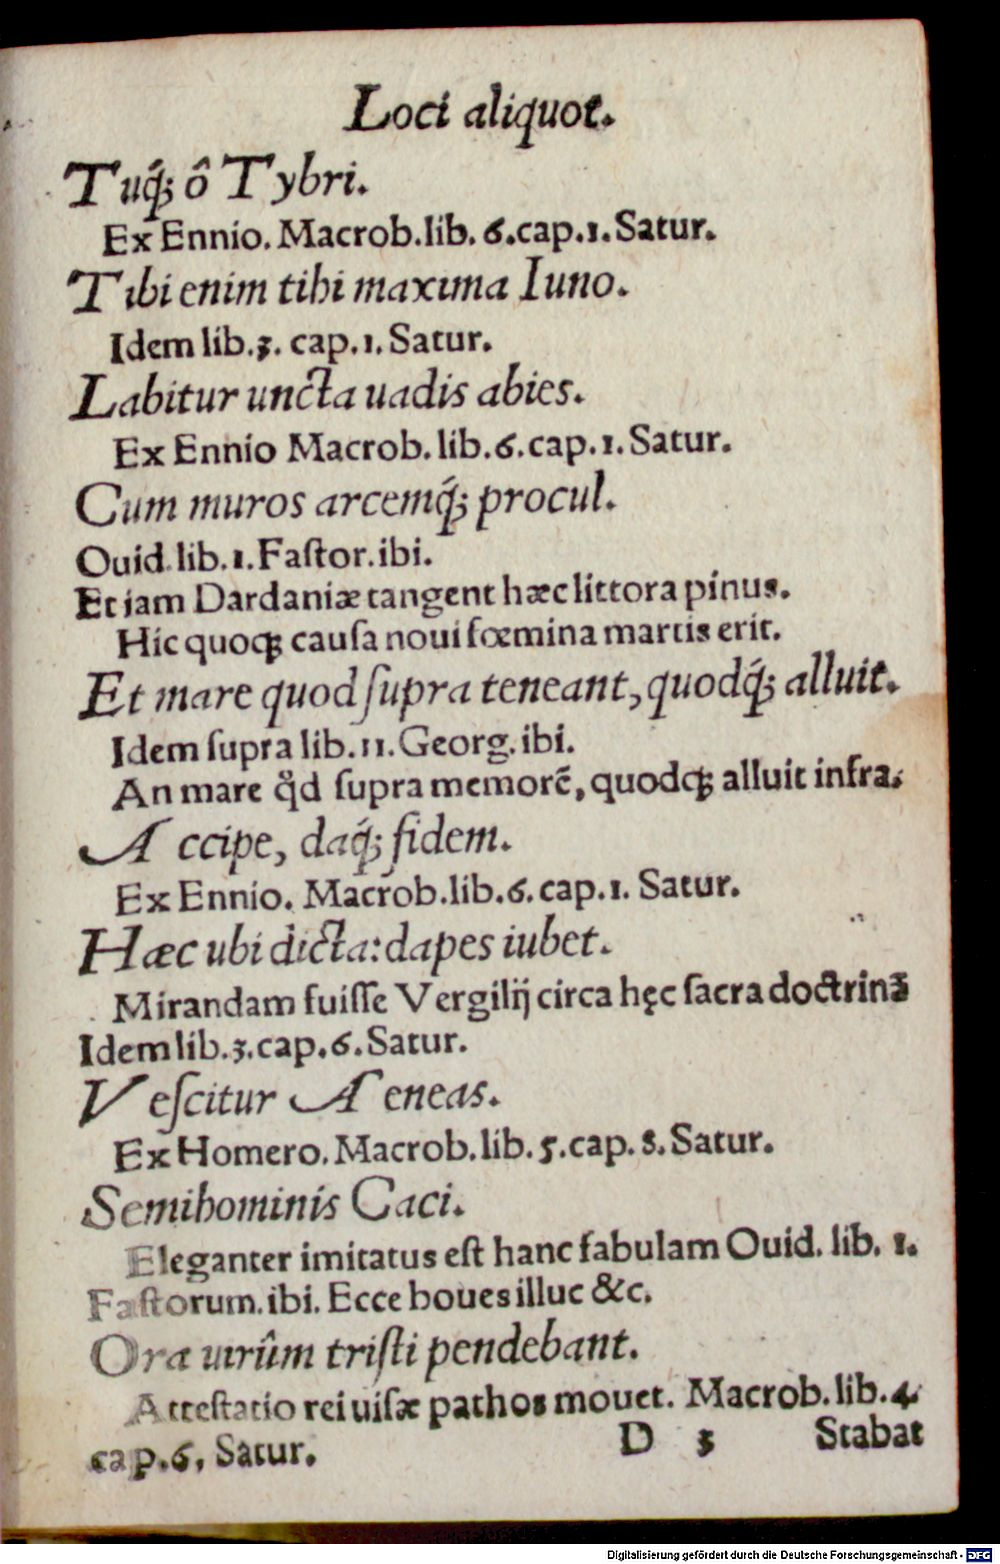 Loci aliquot.
Tuq́; ô Tybri.
Ex Ennio. Macrob.lib. 6.cap.1.Satur.
Tibi enim tibi maxima Iuno.
Idem lib.3. cap.1. Satur.
Labitur uncta uadis abies.
Ex Ennio Macrob. lib.6.cap.1. Satur.
Cum muros arcemq́; procul.
Ouid.lib.1.Faſtor.ibi.
Et iam Dardaniæ tangent hæc littora pinus.
Hic quoq; cauſa noui fœmina martis erit.
Et mare quod ſupra teneant, quodq́; alluit.
Idem ſupra lib.11.Georg.ibi.
An mare qd̊ ſupra memorē, quodq; alluit infra.
Accipe, daq́; fidem.
Ex Ennio. Macrob.lib.6.cap.1. Satur.
Hæc ubi dicta: dapes iubet.
Mirandam fuiſſe Vergilij circa hęc ſacra doctrinā
Idem lib.3.cap.6.Satur.
Veſcitur Aeneas.
Ex Homero. Macrob.lib.5.cap.8.Satur.
Semihominis Caci.
Eleganter imitatus eſt hanc fabulam Ouid. lib. 1.
Faſtorum.ibi. Ecce boues illuc &c.
Ora uirûm triſti pendebant.
Atteſtatio rei uiſæ pathos mouet. Macrob.lib.4.
cap.6. Satur.
D 3 Stabat
Digitalisierung gefördert durch die Deutsche Forschungsgemeinschaft - DFG